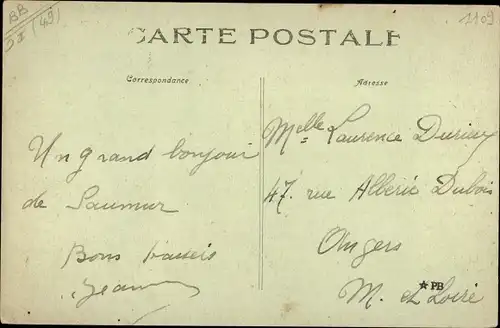 BB
(49)
1109
CARTE POSTALE
Correspondance
Adresse
Un grand bonjour
de Saumur
Bons baisers
Jean
Melle Laurence Durieux
47. rue Alberic Dubois
Angers
M. et Loire
★PB